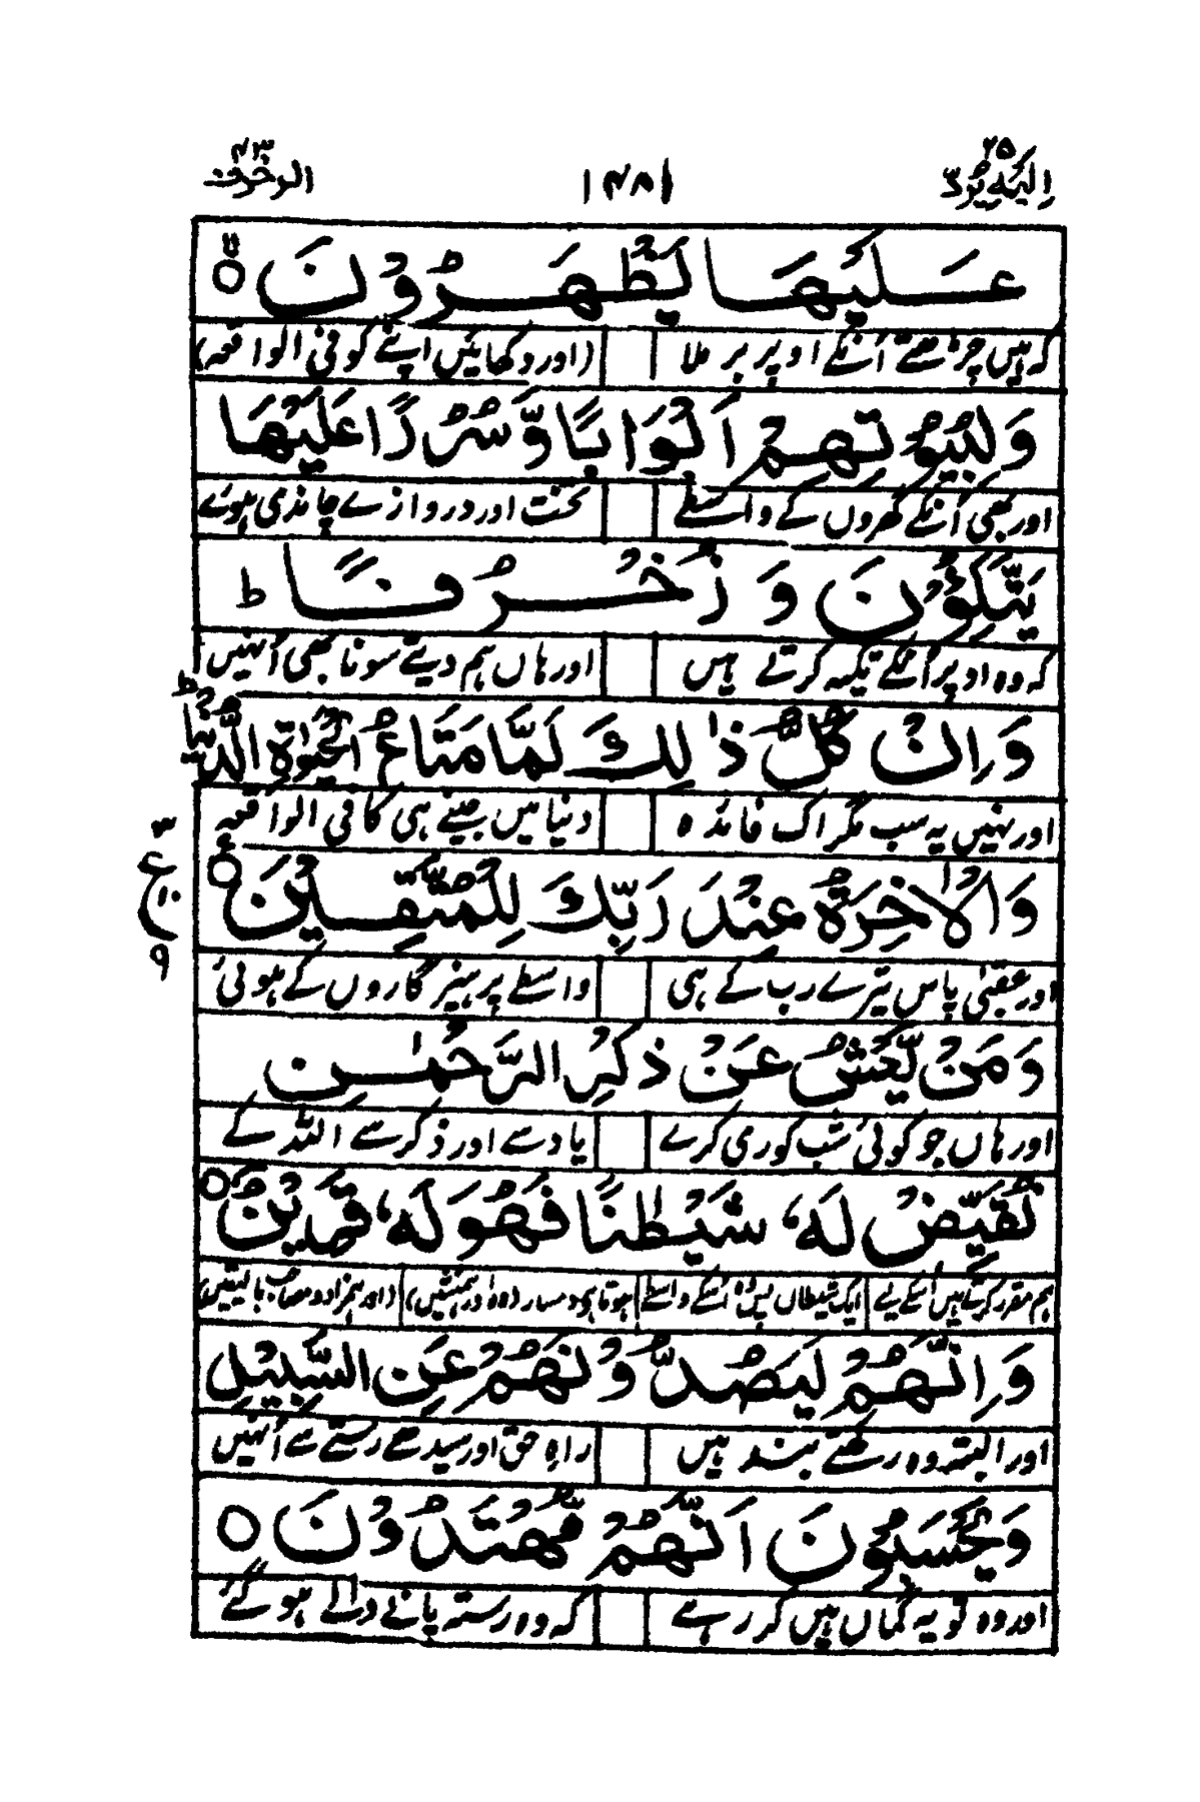 الیه یرد ۲۵ ۱۴۸۱ الزخرف ۴۳
عَلَيْهَا يَظْهَرُوْنَ ○
کہ ہیں چڑھتے اُنکے اوپر بر ملا (اور دکھائیں اپنے کو فی الواقعہ)
وَلِبُيُوْتِهِمْ اَبْوَابًا وَّسُرُرًا عَلَيْهَا
اور بھی اُنکے گھروں کے واسطے تخت اور دروازے چاندی ہوئے
يَتَّكِئُوْنَ وَزُخْرُفًا ط
کہ وہ اوپر اُنکے تکیہ کرتے ہیں اور ہاں ہم دیتے سونا بھی اُنہیں
وَاِنْ كُلُّ ذٰلِكَ لَمَّا مَتَاعُ الْحَيٰوةِ الدُّنْيَا ط
اور نہیں یہ سب مگر اک فائدہ دنیا میں جینے ہی کا فی الواقعہ
وَالْاٰخِرَةُ عِنْدَ رَبِّكَ لِلْمُتَّقِيْنَ ○
۳ ع ۱۰ ۹
اور عقبیٰ پاس تیرے رب کے ہی واسطے پرہیزگاروں کے ہوئی
وَمَنْ يَّعْشُ عَنْ ذِكْرِ الرَّحْمٰنِ
اور ہاں جو کوئی شب کوری کرے یاد سے اور ذکر سے اللہ کے
نُقَيِّضْ لَهٗ شَيْطٰنًا فَهُوَ لَهٗ قَرِيْنٌ ○
ہم مقرر کرتے ہیں اُسکے لیے ایک شیطاں اُسکے واسطے
وَاِنَّهُمْ لَيَصُدُّوْنَهُمْ عَنِ السَّبِيْلِ
اور البتہ وہ رکھتے بند ہیں راہِ حق اور سیدھے رستے سے اُنہیں
وَيَحْسَبُوْنَ اَنَّهُمْ مُّهْتَدُوْنَ ○
اور وہ تو یہ گماں ہیں کر رہے کہ وہ رستہ پانے والے ہو گئے